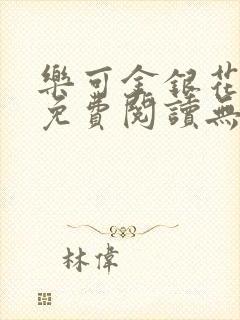 樂可金銀花
免費閱讀無
林偉